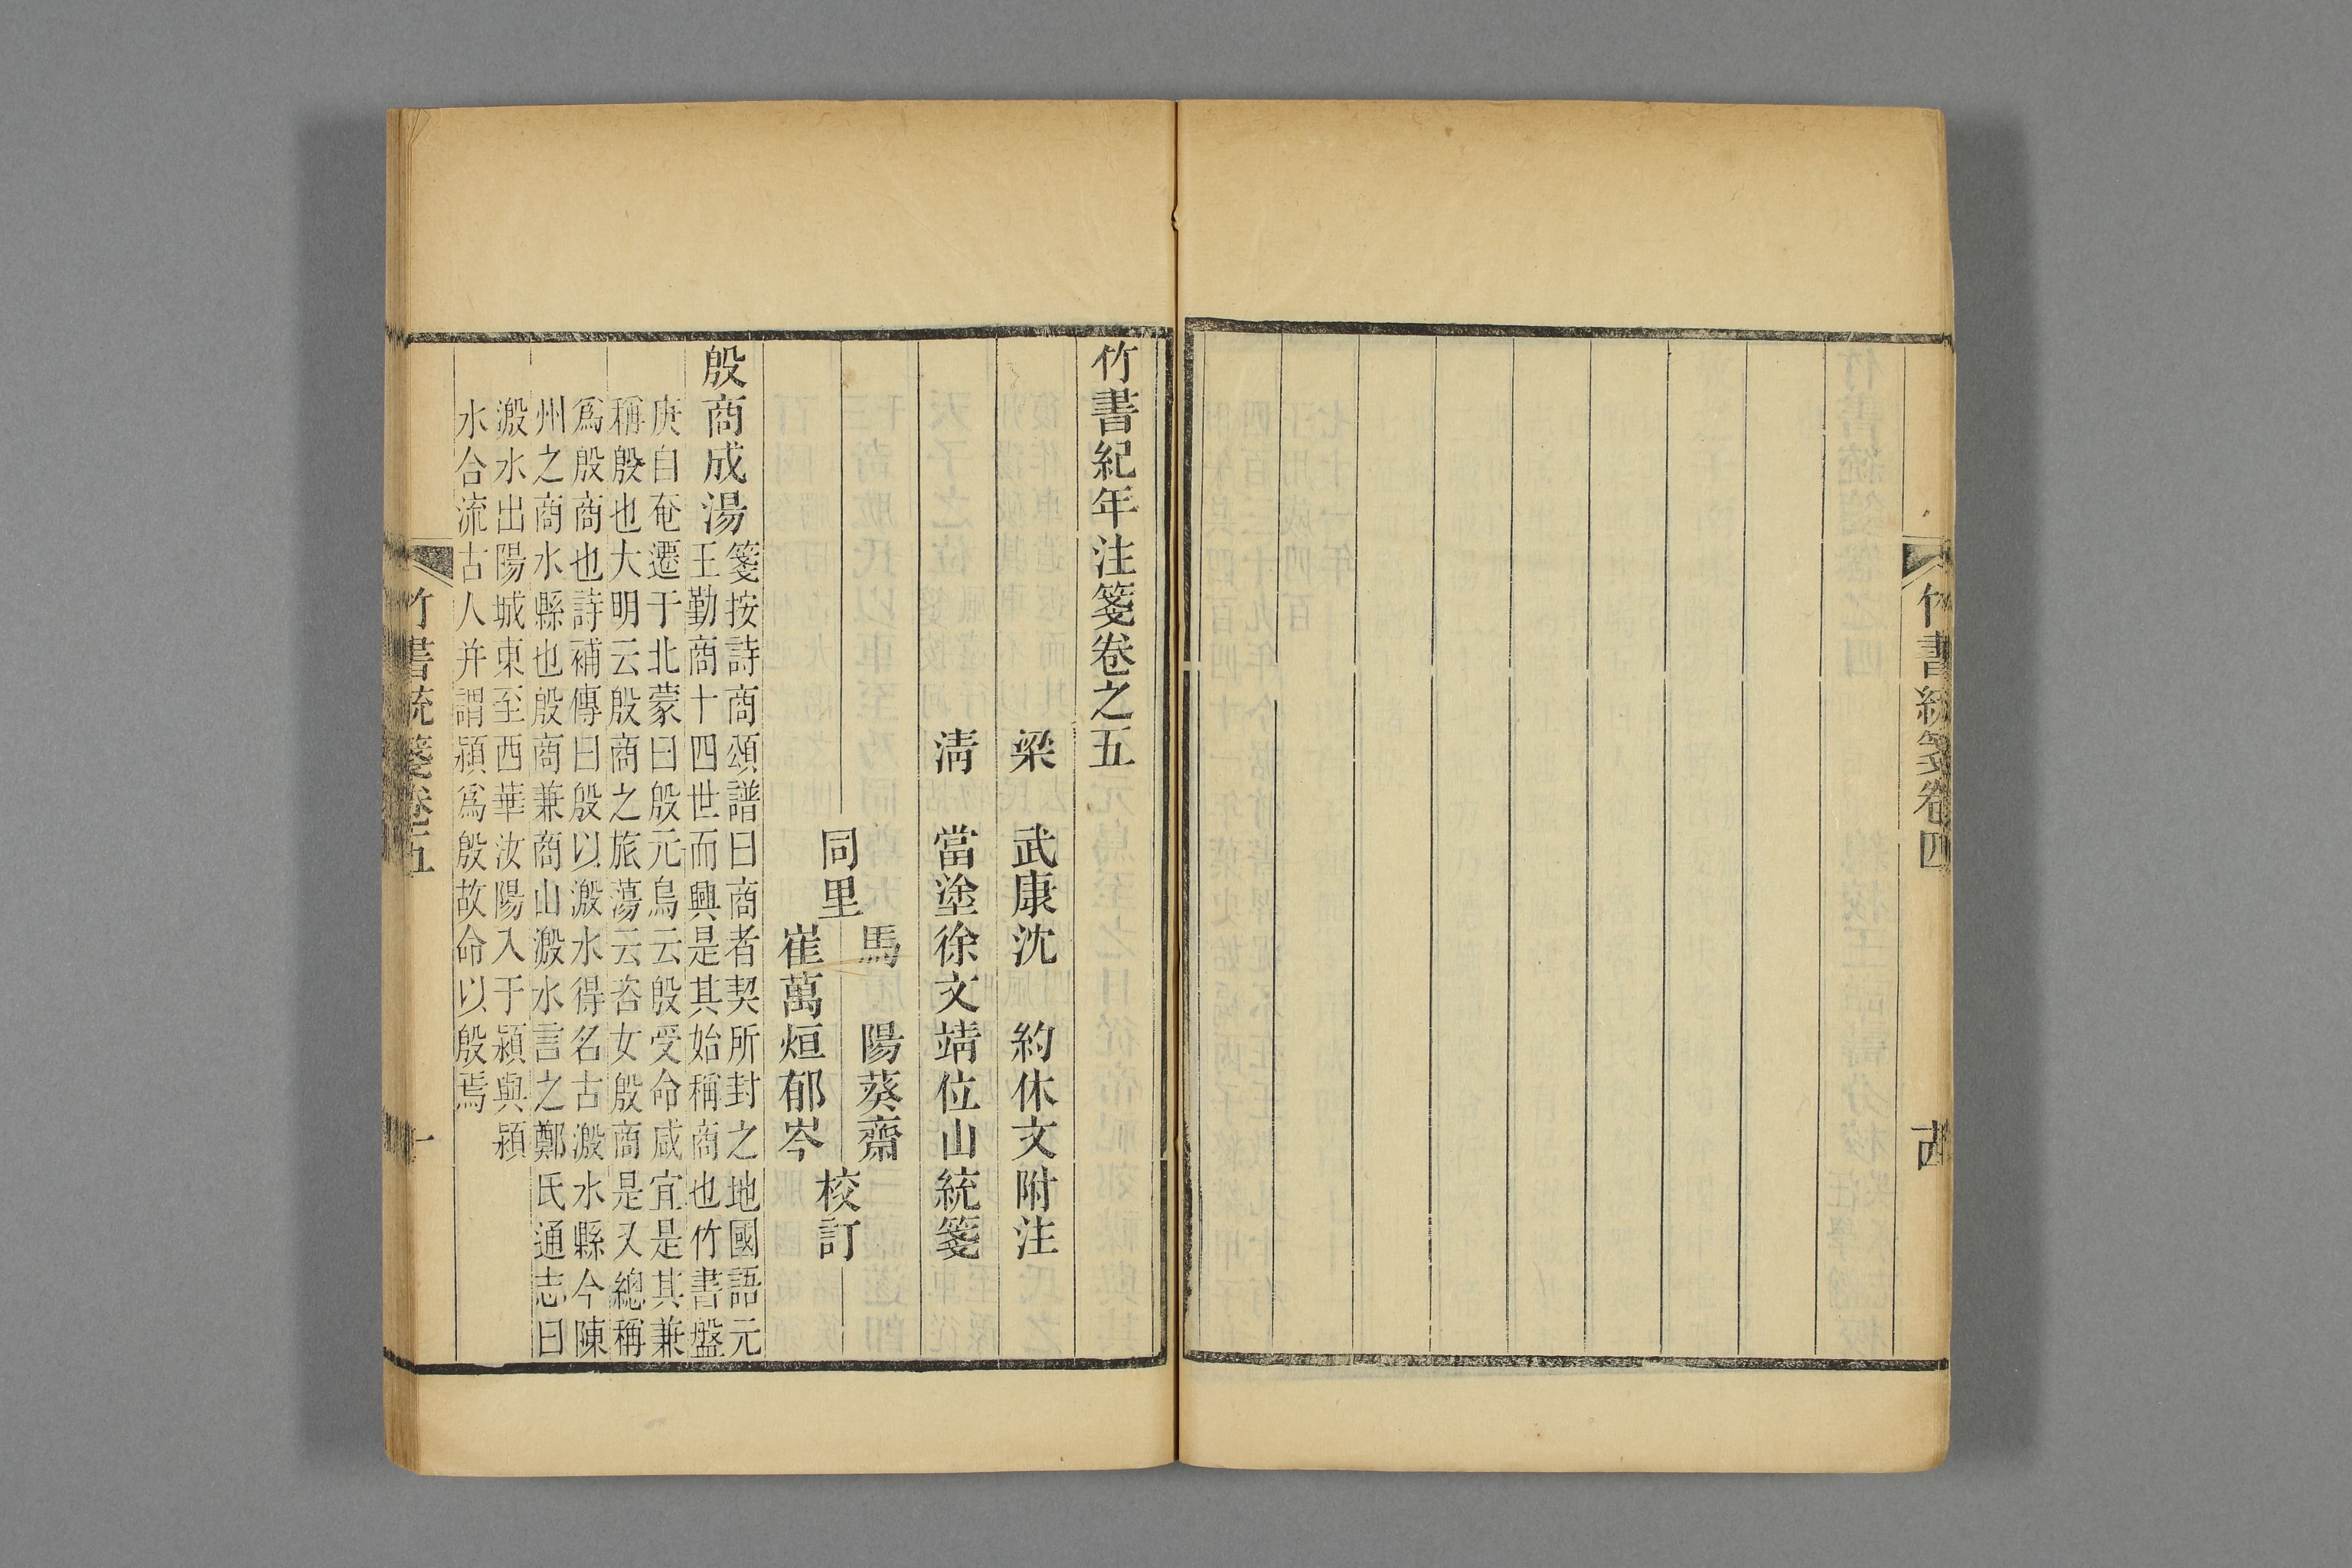 竹書統箋卷四
十四
竹書紀年注箋卷之五
梁 武康沈 約休文附注
清 當塗徐文靖位山統箋
同里
馬 陽葵齋
崔萬烜郁岑
校訂
殷商成湯
箋按詩商頌譜曰商者契所封之地國語元
王勤商十四世而興是其始稱商也竹書盤
庚自奄遷于北蒙曰殷元鳥云殷受命咸宜是其兼
稱殷也大明云殷商之旅蕩云咨女殷商是又總稱
爲殷商也詩補傳曰殷以溵水得名古溵水縣今陳
州之商水縣也殷商兼商山溵水言之鄭氏通志曰
溵水出陽城東至西華汝陽入于潁與潁
水合流古人并謂潁爲殷故命以殷焉
竹書統箋卷五
一